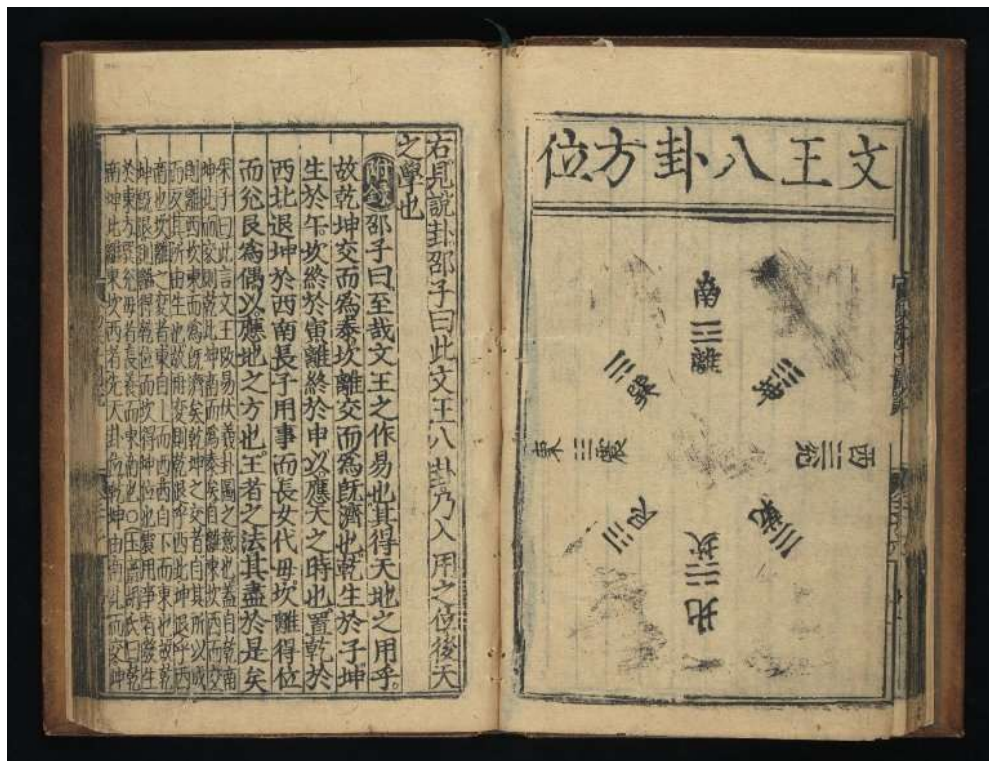 文王八卦方位
南
離
坤
西
兌
乾
北
坎
艮
東
震
巽
右見説卦邵子曰此文王八卦乃入用之位後天
之學也
附錄邵子曰至哉文王之作易也其得天地之用乎
故乾坤交而為泰坎離交而為旣濟也乾生於子坤
生於午坎終於寅離終於申以應天之時也置乾於
西北退坤於西南長子用事而長女代母坎離得位
而兌艮為偶以應地之方也王者之法其盡於是矣
朱子曰此言文王改易伏羲卦圖之意也蓋自乾南
坤北而交則乾北坤南而為泰矣自離東坎西而交
則離西坎東而為旣濟矣乾坤之交者自其所以成
而反其所由生也故再變則乾退乎西北坤退乎西
南也坎離之変者東自上而西西自下而東也故乾
坤旣退則離得乾位而坎得坤位也震用事者發生
於東方巽代母者長養於東南也○玉齋胡氏曰乾
南坤北離東坎西者先天卦位乾坤由南北而交